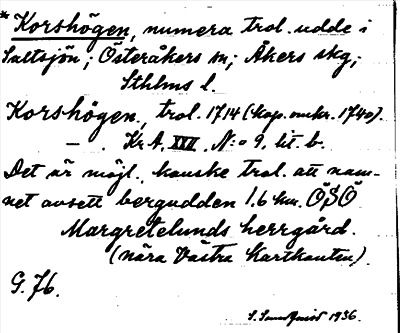 * Korshögen, numera trol. udde i
Saltsjön; Österåkers sn; Åkers skg;
Sthlms l.
Korshögen, trol. 1714 (kop. omkr. 1740).
— . Kr.A. XVI. N:o 9. lit. b.
Det är möjl. kanske trol. att nam-
net avsett bergudden 1.6 km. ÖSÖ
Margretelunds herrgård.
(nära Västra Kartkanten)
G. 76.
1936.